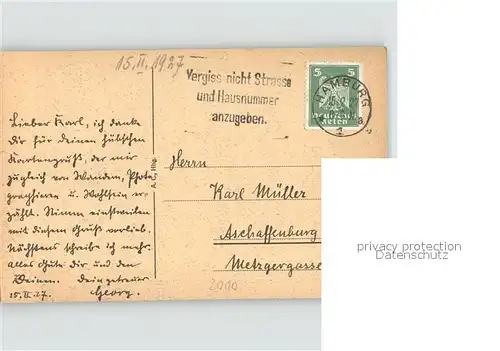 15.II.1927
Vergiss nicht Strasse
und Hausnummer
anzugeben.
5 5
HAMBURG
1
Lieber Karl, ich danke
dir für deinen hübschen
Kartengruß, der mir
zugleich von Wandern, Photo
graphieren u. Wohlsein er-
zählt. Nimm einstweilen
mit diesem Gruß vorlieb.
Nächstens schreibe ich mehr.
Alles Gute dir und den
Deinen. Dein getreuer
15.II.27. Georg.
Herrn
Karl Müller
Aschaffenburg
Metzgergasse
privacy protection
Datenschutz